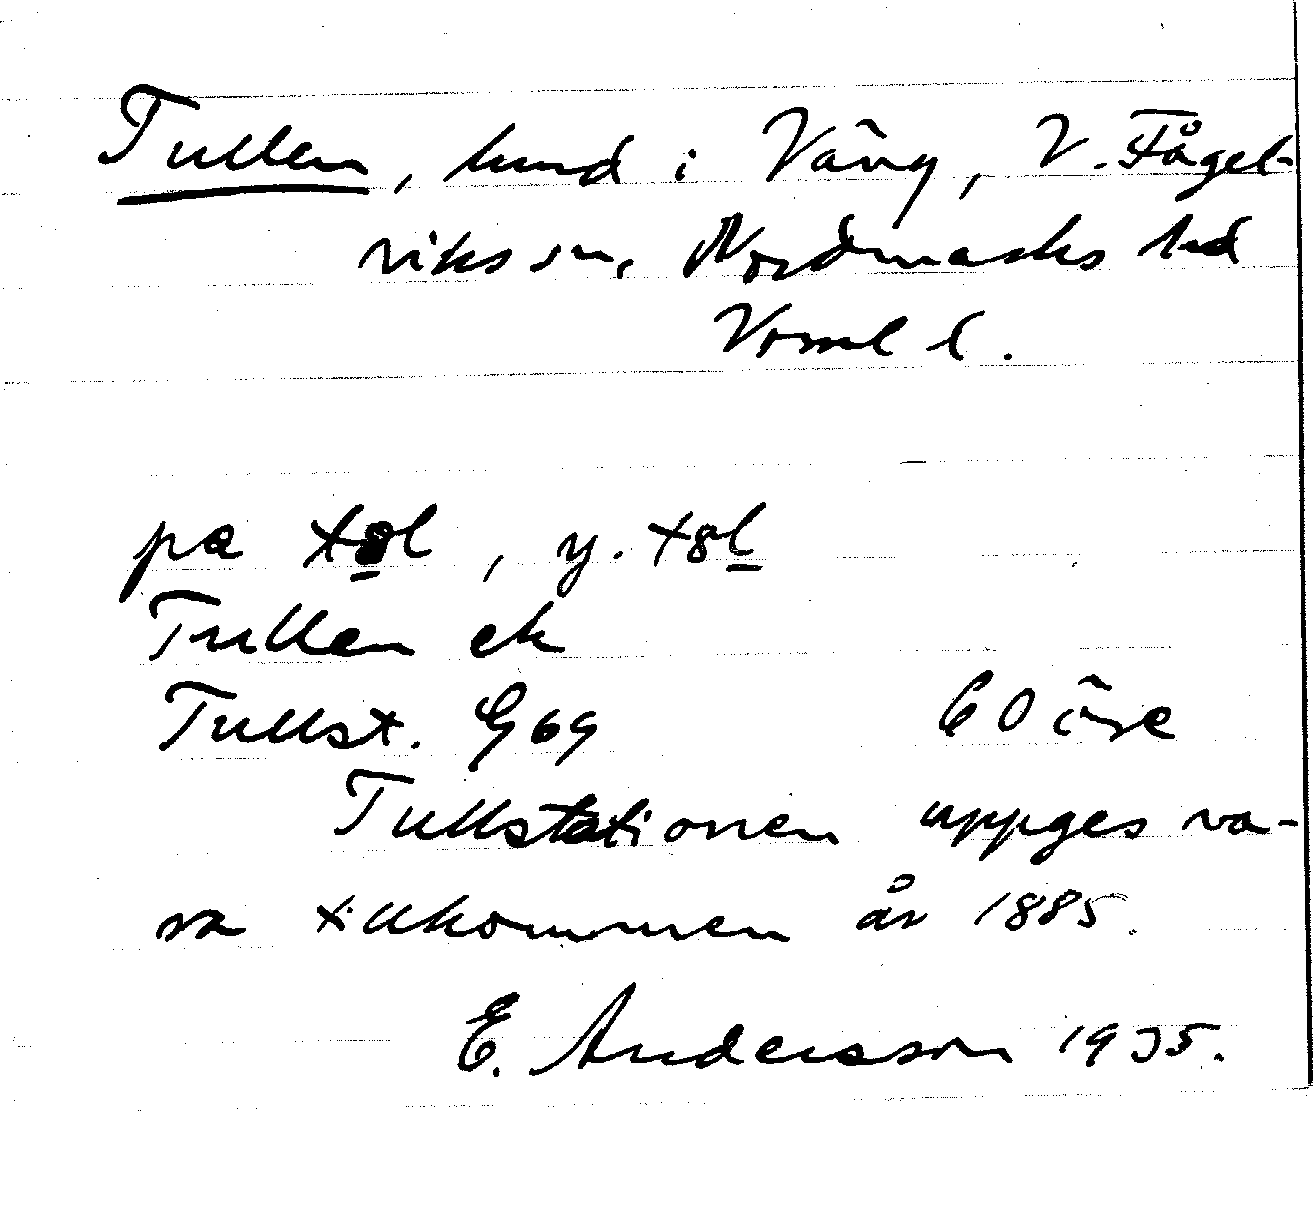 Tullen, hmd i Väng, V. Fågel-
viks sn, Nordmarks hd
Vrml l.
på tɵl, y. tɵl
Tullen ek
Tullst. G69 60 öre
Tullstationen uppges va-
ra tillkommen år 1885.
E. Andersson 1935.